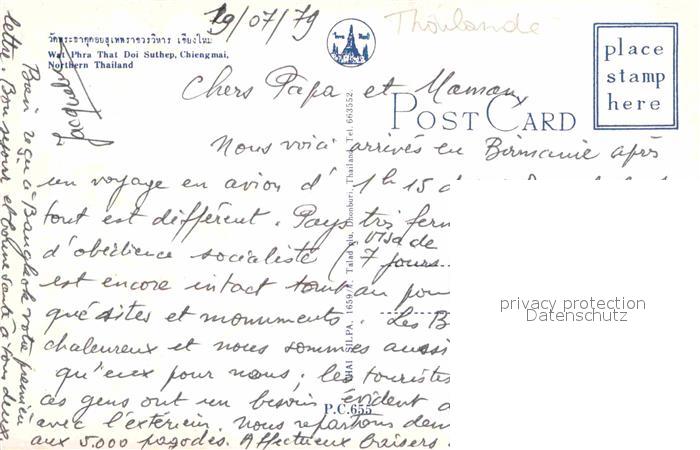 19/07/79
Thaïlande
วัดพระธาตุดอยสุเทพราชวรวิหาร เชียงใหม่
Wat Phra That Doi Suthep, Chiengmai,
Northern Thailand
place
stamp
here
POST CARD
Chers Papa et Maman,
Nous voici arrivés en Birmanie après
un voyage en avion d' 1h 15
tout est différent. Pays très ferm
d'obédience socialiste (visa de
7 jours
est encore intact tout au
qué sites et monuments. Les B
chaleureux et nous sommes aussi
qu'eux pour nous; les touristes
ces gens ont un besoin évident
avec l'extérieur. Nous repartons dem
aux 5.000 pagodes. Affectueux baisers.
Jacqueline
Bien reçu à Bangkok votre première
lettre. Bon séjour et bonne santé à tous deux.
THAI SILPA, 1659/ Talad plu, Dhonburi, Thailand. Tel. 663552
P.C.655
privacy protection
Datenschutz